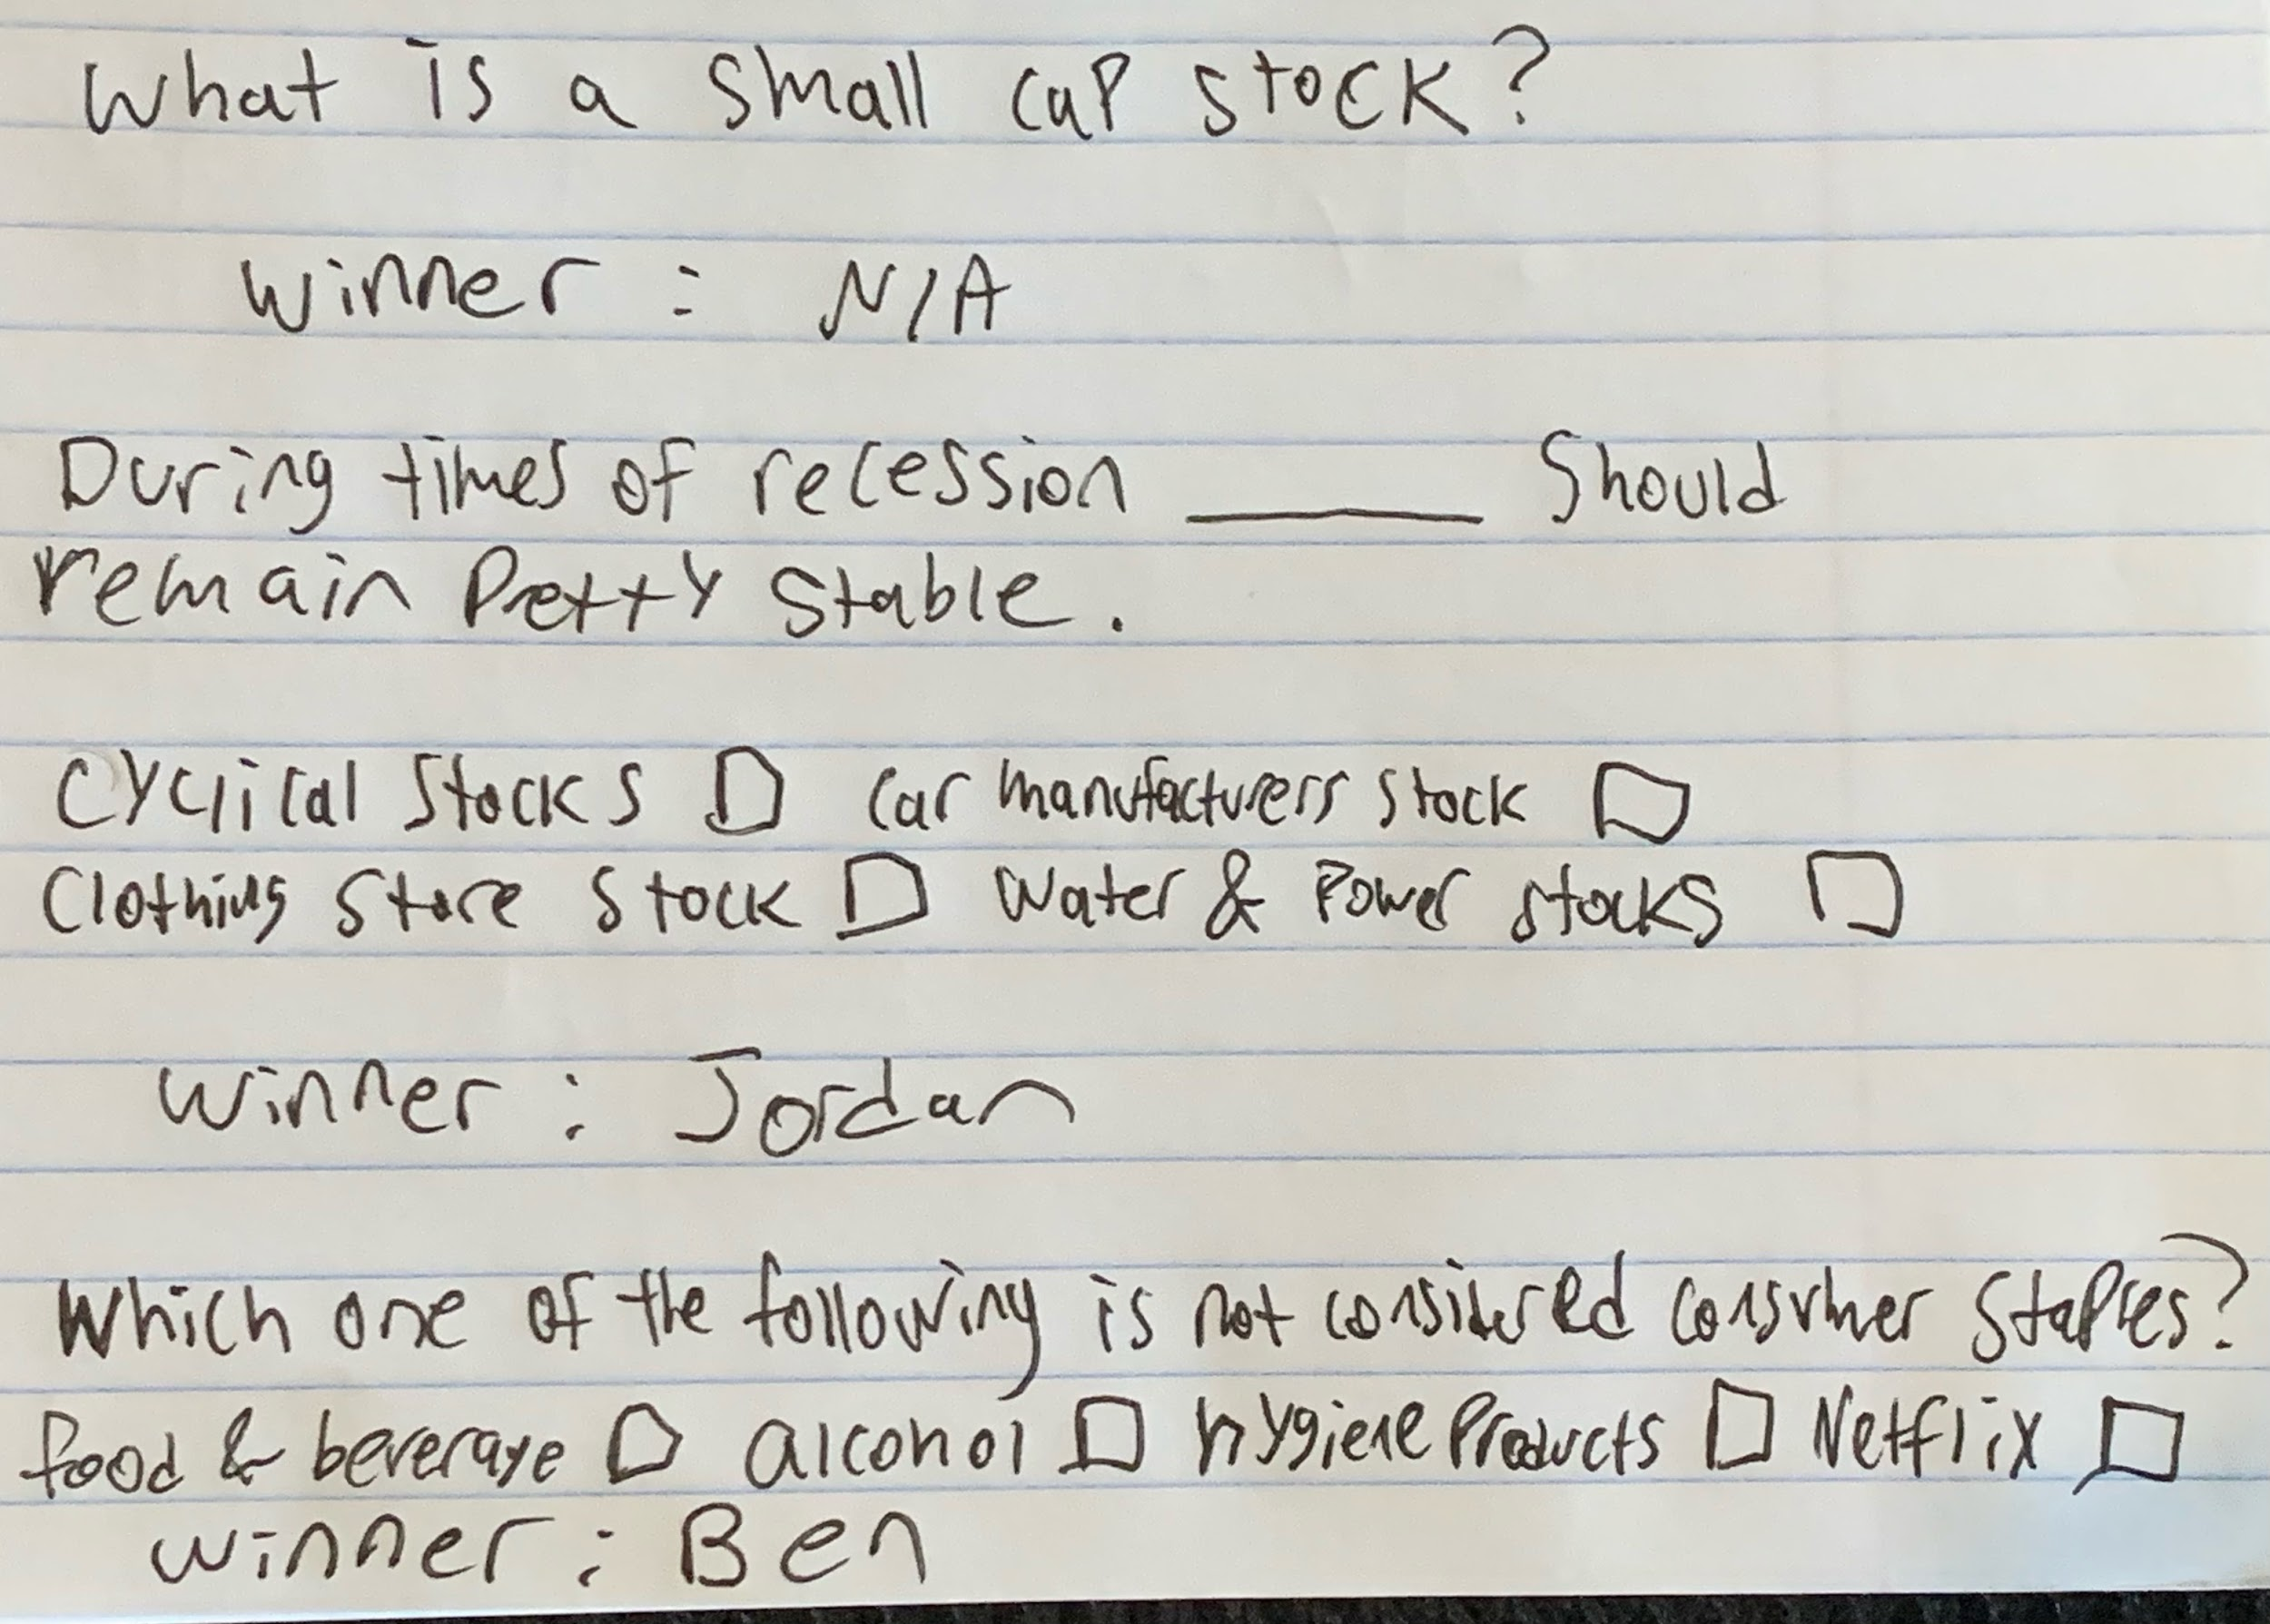 What is a small cap stock?
Winner: N/A
During times of recession ____ should
remain Pretty Stable.
Cyclical Stocks ☐ Car manufacturers stock ☐
Clothing Store Stock ☐ Water & Power stocks ☐
Winner: Jordan
Which one of the following is not considered consumer staples?
food & beverage ☐ alcohol ☐ hygiene Products ☐ Netflix ☐
Winner: Ben